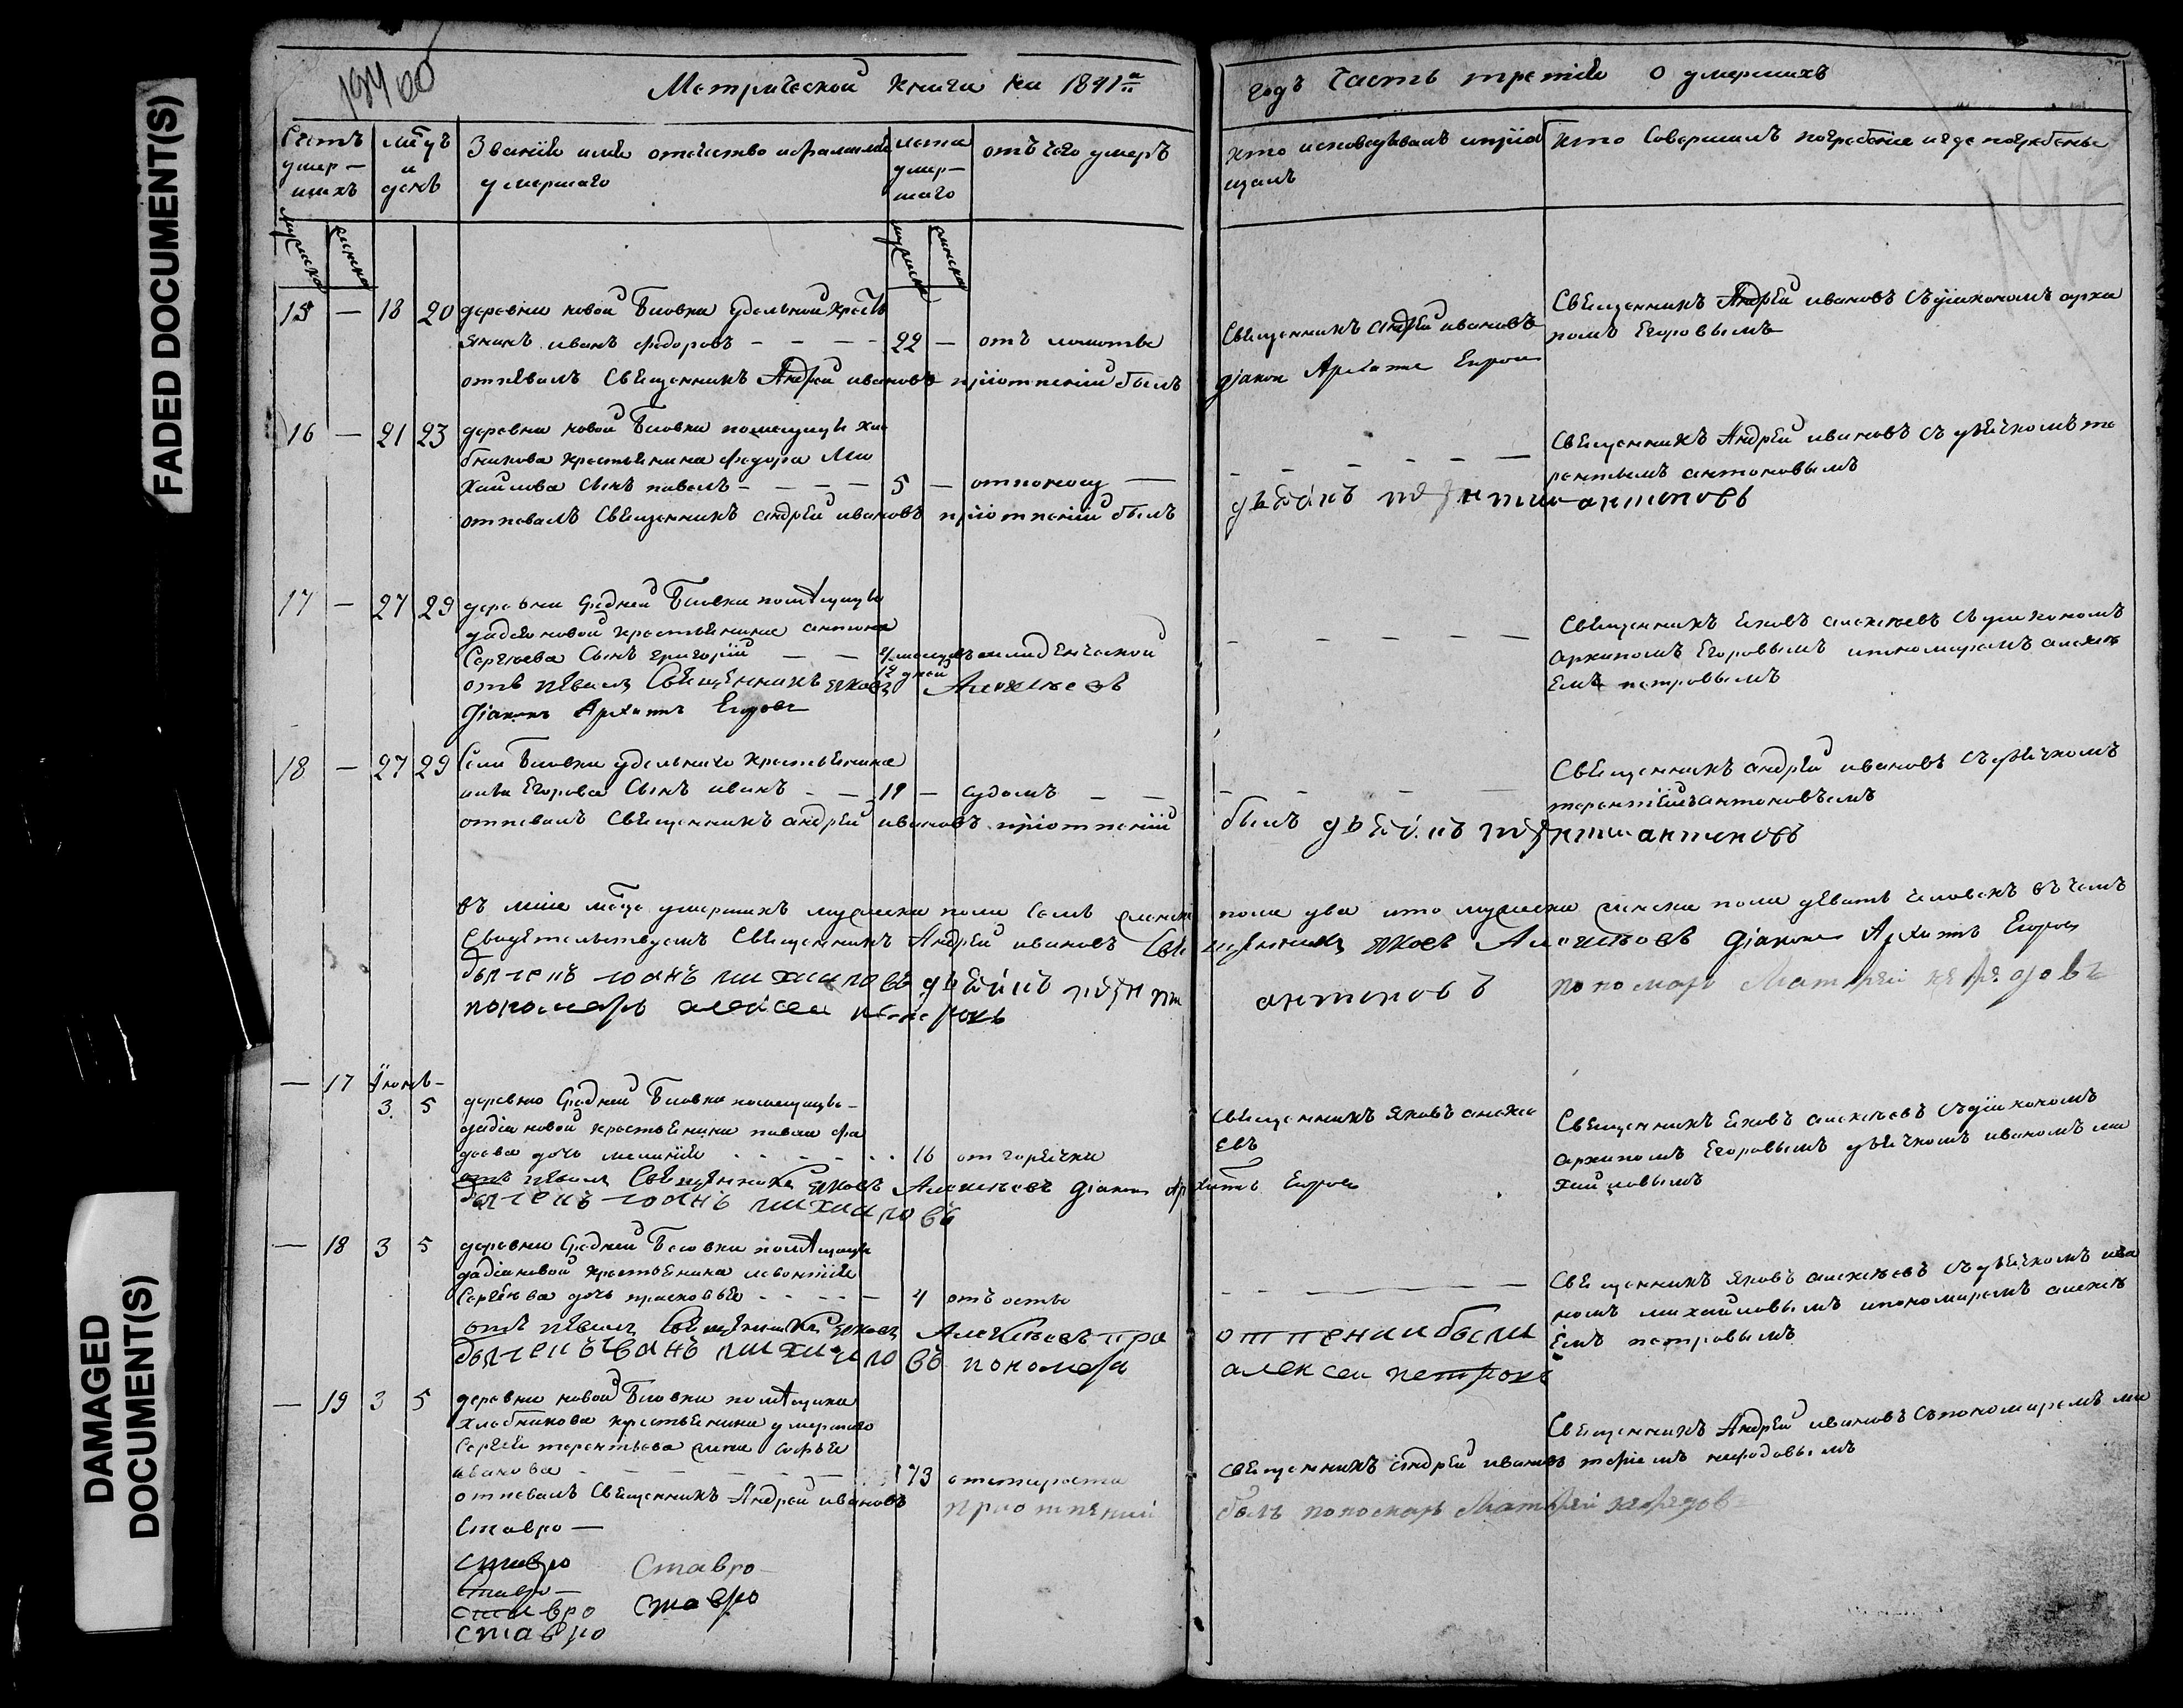 FADED DOCUMENT(S)
DAMAGED DOCUMENT(S)
Метрической книги на 1841й
годъ Часть третiя о умершихъ
Счетъ умер-шихъ
мѣцъ и день
Званiе имя отечество и фамилiя умершаго
лета умер-шаго
отъ чего умеръ
кто исповедывалъ и прiобщалъ
кто Совершалъ погребенiе и где погребены
мужеска
женска
мужеска
женска
15 — 18 20 деревни новой Бѣловки удельной крестья
янинъ иванъ федоровъ — — — 22 — отъ чахотки
отпевалъ Священникъ Андрей ивановъ при отпенiи былъ
дiаконъ Архипъ Егоровъ
Священникъ андрей ивановъ
Священникъ Андрей ивановъ съ дiакономъ архи
помъ Егоровымъ
16 — 21 23 деревни новой Бѣловки помещицы хле
бникова крестьянина федора Ми
хайлова Сынъ павелъ — — — 5 — от поносу —
отпевалъ Священникъ андрей ивановъ при отпенiи былъ
дьячекъ терентий антоновъ
Священникъ Андрей ивановъ съ дьячкомъ те
рентьемъ антоновымъ
17 — 27 29 деревни Средней Бѣловки помѣщицы
дадiановой крестьянина антона
Сергеева Сынъ григорiй — — младенческой
отъ пѣвалъ Священникъ Яковъ Алексѣевъ
дiаконъ Архипъ Егоровъ
Священникъ Яковъ алексеевъ съ дiакономъ
архипомъ Егоровымъ и пономаремъ алексе
емъ петровымъ
18 — 27 29 Села Бѣловки удельнаго крестьянина
Егорова Сынъ иванъ — — 19 — — —
отпевалъ Священникъ андрей ивановъ при отпенiи
былъ дьячекъ терентий антоновъ
Священникъ андрей ивановъ съ дьячкомъ
терентiемъ антоновымъ
въ мае мѣцѣ умершихъ мужеска пола Семь женска
пола два и то мужеска женска пола девять человекъ въ чемъ
Свидетельствуемъ Священникъ Андрей ивановъ Свя
щенникъ Яковъ Алексѣевъ дiаконъ Архипъ Егоровъ
дьячекъ iоанъ михайловъ дьячекъ теренти
антоновъ пономарь Матвей
пономарь алексей петровъ
— 17 Iюнь- 3 5 деревни Средней Бѣловки помещицы-
дадiановой крестьянина павла фа
деева дочь меланiя - - - 16 от горячки
отъ пѣвалъ Священникъ Яковъ Алексѣевъ дiаконъ Архипъ Егоровъ
дьячекъ iоанъ михайловъ
Священникъ Яковъ алексе
евъ
Священникъ Яковъ алексеевъ съ дiакономъ
архипомъ Егоровымъ дьячкомъ иваномъ ми
хайловымъ
— 18 3 5 деревни Средней Бѣловки помѣщицы
дадiановой крестьянина леонтiя
Сергеева дочь прасковья - - - 4 отъ оспы
отъ пѣвалъ Священникъ Яковъ Алексѣевъ при
отпении были
дьячекъ iванъ михайловъ пономарь
алексеи петровъ
Священникъ Яковъ алексеевъ съ дьячкомъ ива
номъ михайловымъ и пономаремъ алексе
емъ петровымъ
— 19 3 5 деревни новой Бѣловки помѣщика
хлебникова крестьянина умершаго
Сергея терентьева жена софья
иванова — — — 73 от старости
отпевалъ Священникъ Андрей ивановъ при отпении
былъ пономарь Матвей
Священникъ андрей ивановъ
Священникъ Андрей ивановъ съ пономаремъ ма
Ставро —
Ставро Ставро
Ставро —
Ставро Ставро
Ставро